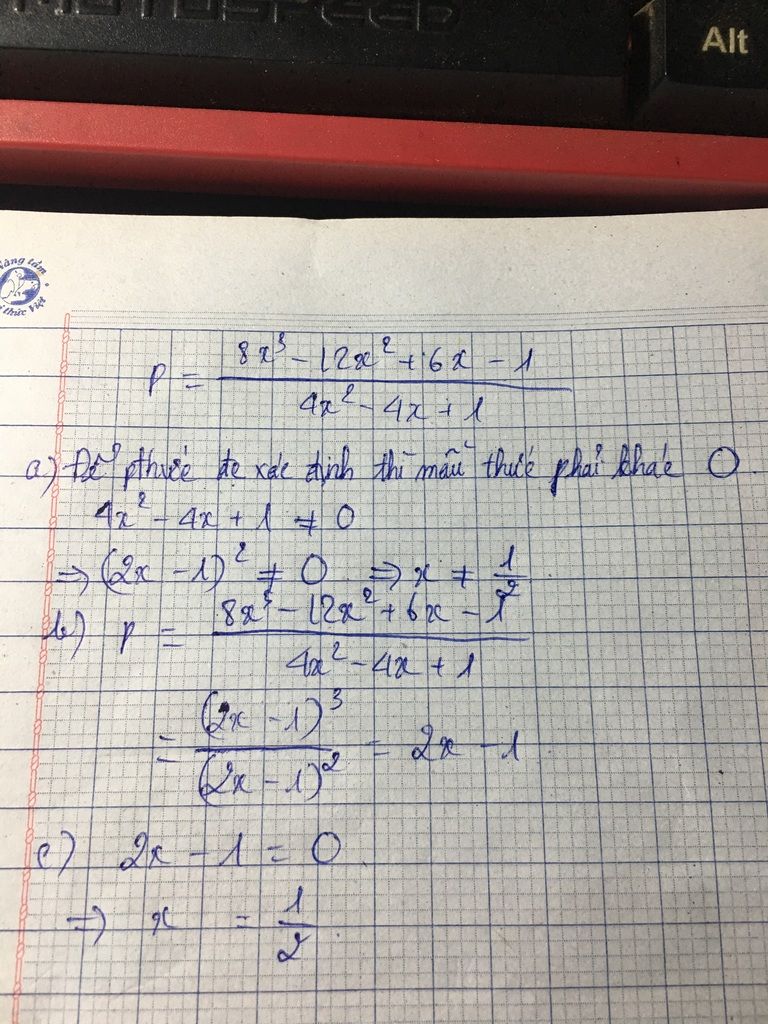 MOTOSPEED
Alt
Nâng tầm
tri thức Việt
P = \frac{8x^3 - 12x^2 + 6x - 1}{4x^2 - 4x + 1}
a) Để pthức đc xác định thì mẫu thức phải khác 0.
4x^2 - 4x + 1 ≠ 0
=> (2x - 1)^2 ≠ 0 => x ≠ \frac{1}{2}
b) P = \frac{8x^3 - 12x^2 + 6x - 1}{4x^2 - 4x + 1}
= \frac{(2x - 1)^3}{(2x - 1)^2} = 2x - 1.
c) 2x - 1 = 0.
=> x = \frac{1}{2}.